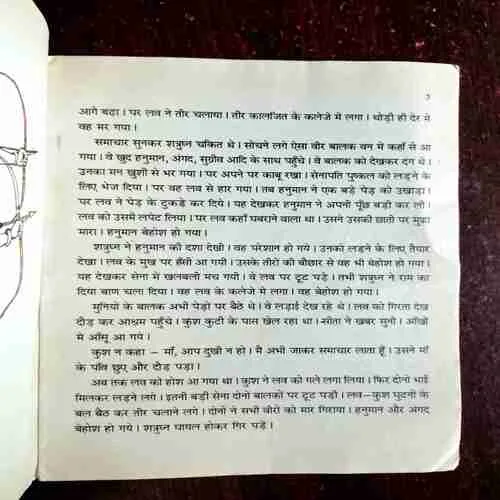 3
आगे बढ़ा। पर लव ने तीर चलाया। तीर कालजित के कलेजे में लगा। थोड़ी ही देर में
वह मर गया।
समाचार सुनकर शत्रुघ्न चकित थे। सोचने लगे ऐसा वीर बालक वन में कहाँ से आ
गया। वे खुद हनुमान, अंगद, सुग्रीव आदि के साथ पहुँचे। वे बालक को देखकर दंग थे।
उनका मन खुशी से भर गया। पर अपने पर काबू रखा। सेनापति पुष्कल को लड़ने के
लिए भेज दिया। पर वह लव से हार गया। तब हनुमान ने एक बड़े पेड़ को उखाड़ा।
पर लव ने पेड़ के टुकड़े कर दिये। यह देखकर हनुमान ने अपनी पूँछ बड़ी कर ली।
लव को उसमें लपेट लिया। पर लव कहाँ घबराने वाला था। उसने उसकी छाती पर मुक्का
मारा। हनुमान बेहोश हो गया।
शत्रुघ्न ने हनुमान की दशा देखी। वह परेशान हो गये। उनको लड़ने के लिए तैयार
देखा। लव के मुख पर हँसी आ गयी। उसके तीरों की बौछार से वह भी बेहोश हो गया।
यह देखकर सेना में खलबली मच गयी। वे लव पर टूट पड़े। तभी शत्रुघ्न ने राम का
दिया बाण चला दिया। वह लव के कलेजे में लगा। वह बेहोश हो गया।
मुनियों के बालक अभी पेड़ों पर बैठे थे। वे लड़ाई देख रहे थे। लव को गिरता देख
दौड़ कर आश्रम पहुँचे। कुश कुटी के पास खेल रहा था। सीता ने खबर सुनी। आँखों
में आँसू आ गये।
कुश न कहा – माँ, आप दुखी न हों। मैं अभी जाकर समाचार लाता हूँ। उसने माँ
के पाँव छुए और दौड़ पड़ा।
अब तक लव को होश आ गया था। कुश ने लव को गले लगा लिया। फिर दोनों भाई
मिलकर लड़ने लगे। इतनी बड़ी सेना दोनों बालकों पर टूट पड़ी। लव–कुश घुटनों के
बल बैठ कर तीर चलाने लगे। दोनों ने सभी वीरों को मार गिराया। हनुमान और अंगद
बेहोश हो गये। शत्रुघ्न घायल होकर गिर पड़े।